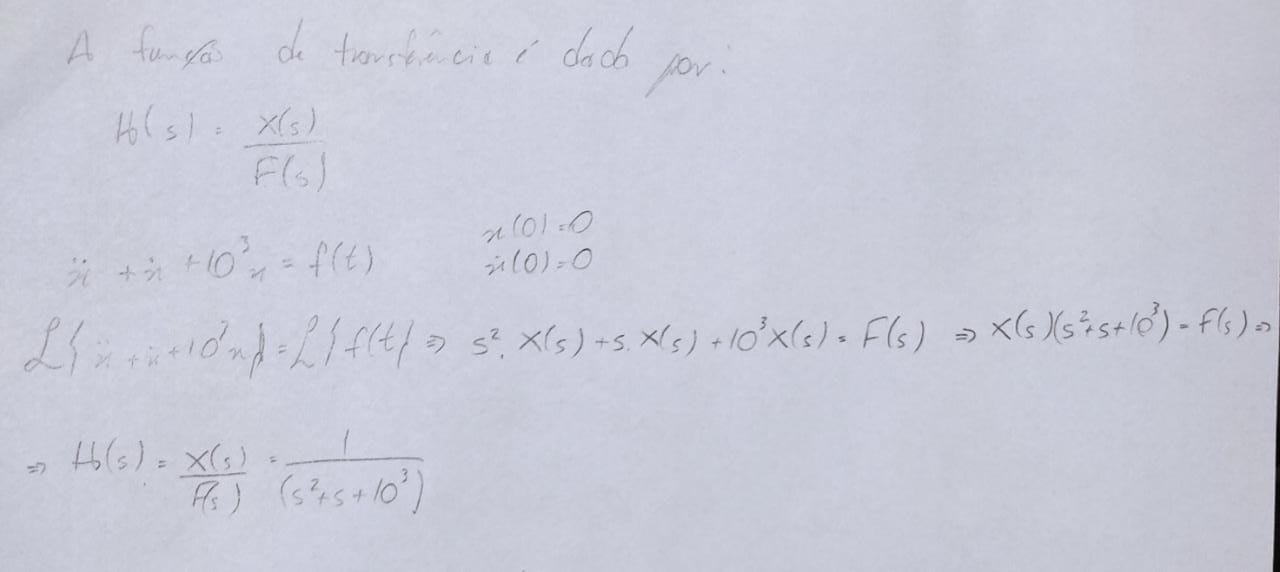 A função de transferência é dada por:
H(s) = X(s)/F(s)
ẍ + ẋ + 10³x = f(t) x(0)=0
ẋ(0)=0
ℒ{ẍ + ẋ + 10³x} = ℒ{f(t)} ⇒ s². X(s) + s. X(s) + 10³X(s) = F(s) ⇒ X(s)(s²+s+10³) = F(s) ⇒
⇒ H(s) = X(s)/F(s) = 1/(s²+s+10³)